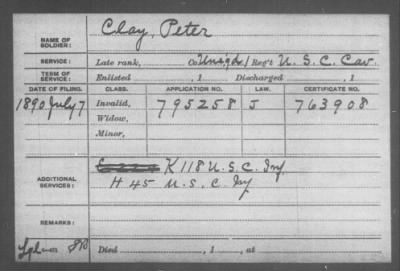 NAME OF SOLDIER: Clay, Peter
SERVICE: Late rank, Co. Unsigd. / Reg't U. S. C. Cav.
TERM OF SERVICE: Enlisted , 1 Discharged , 1
DATE OF FILING. CLASS. APPLICATION NO. LAW. CERTIFICATE NO.
1890 July 7 Invalid, 795258 J 763908
Widow,
Minor,
ADDITIONAL SERVICES: K 118 U. S. C. Inf
H 45 U. S. C. Inf
REMARKS:
Died , 1 , at